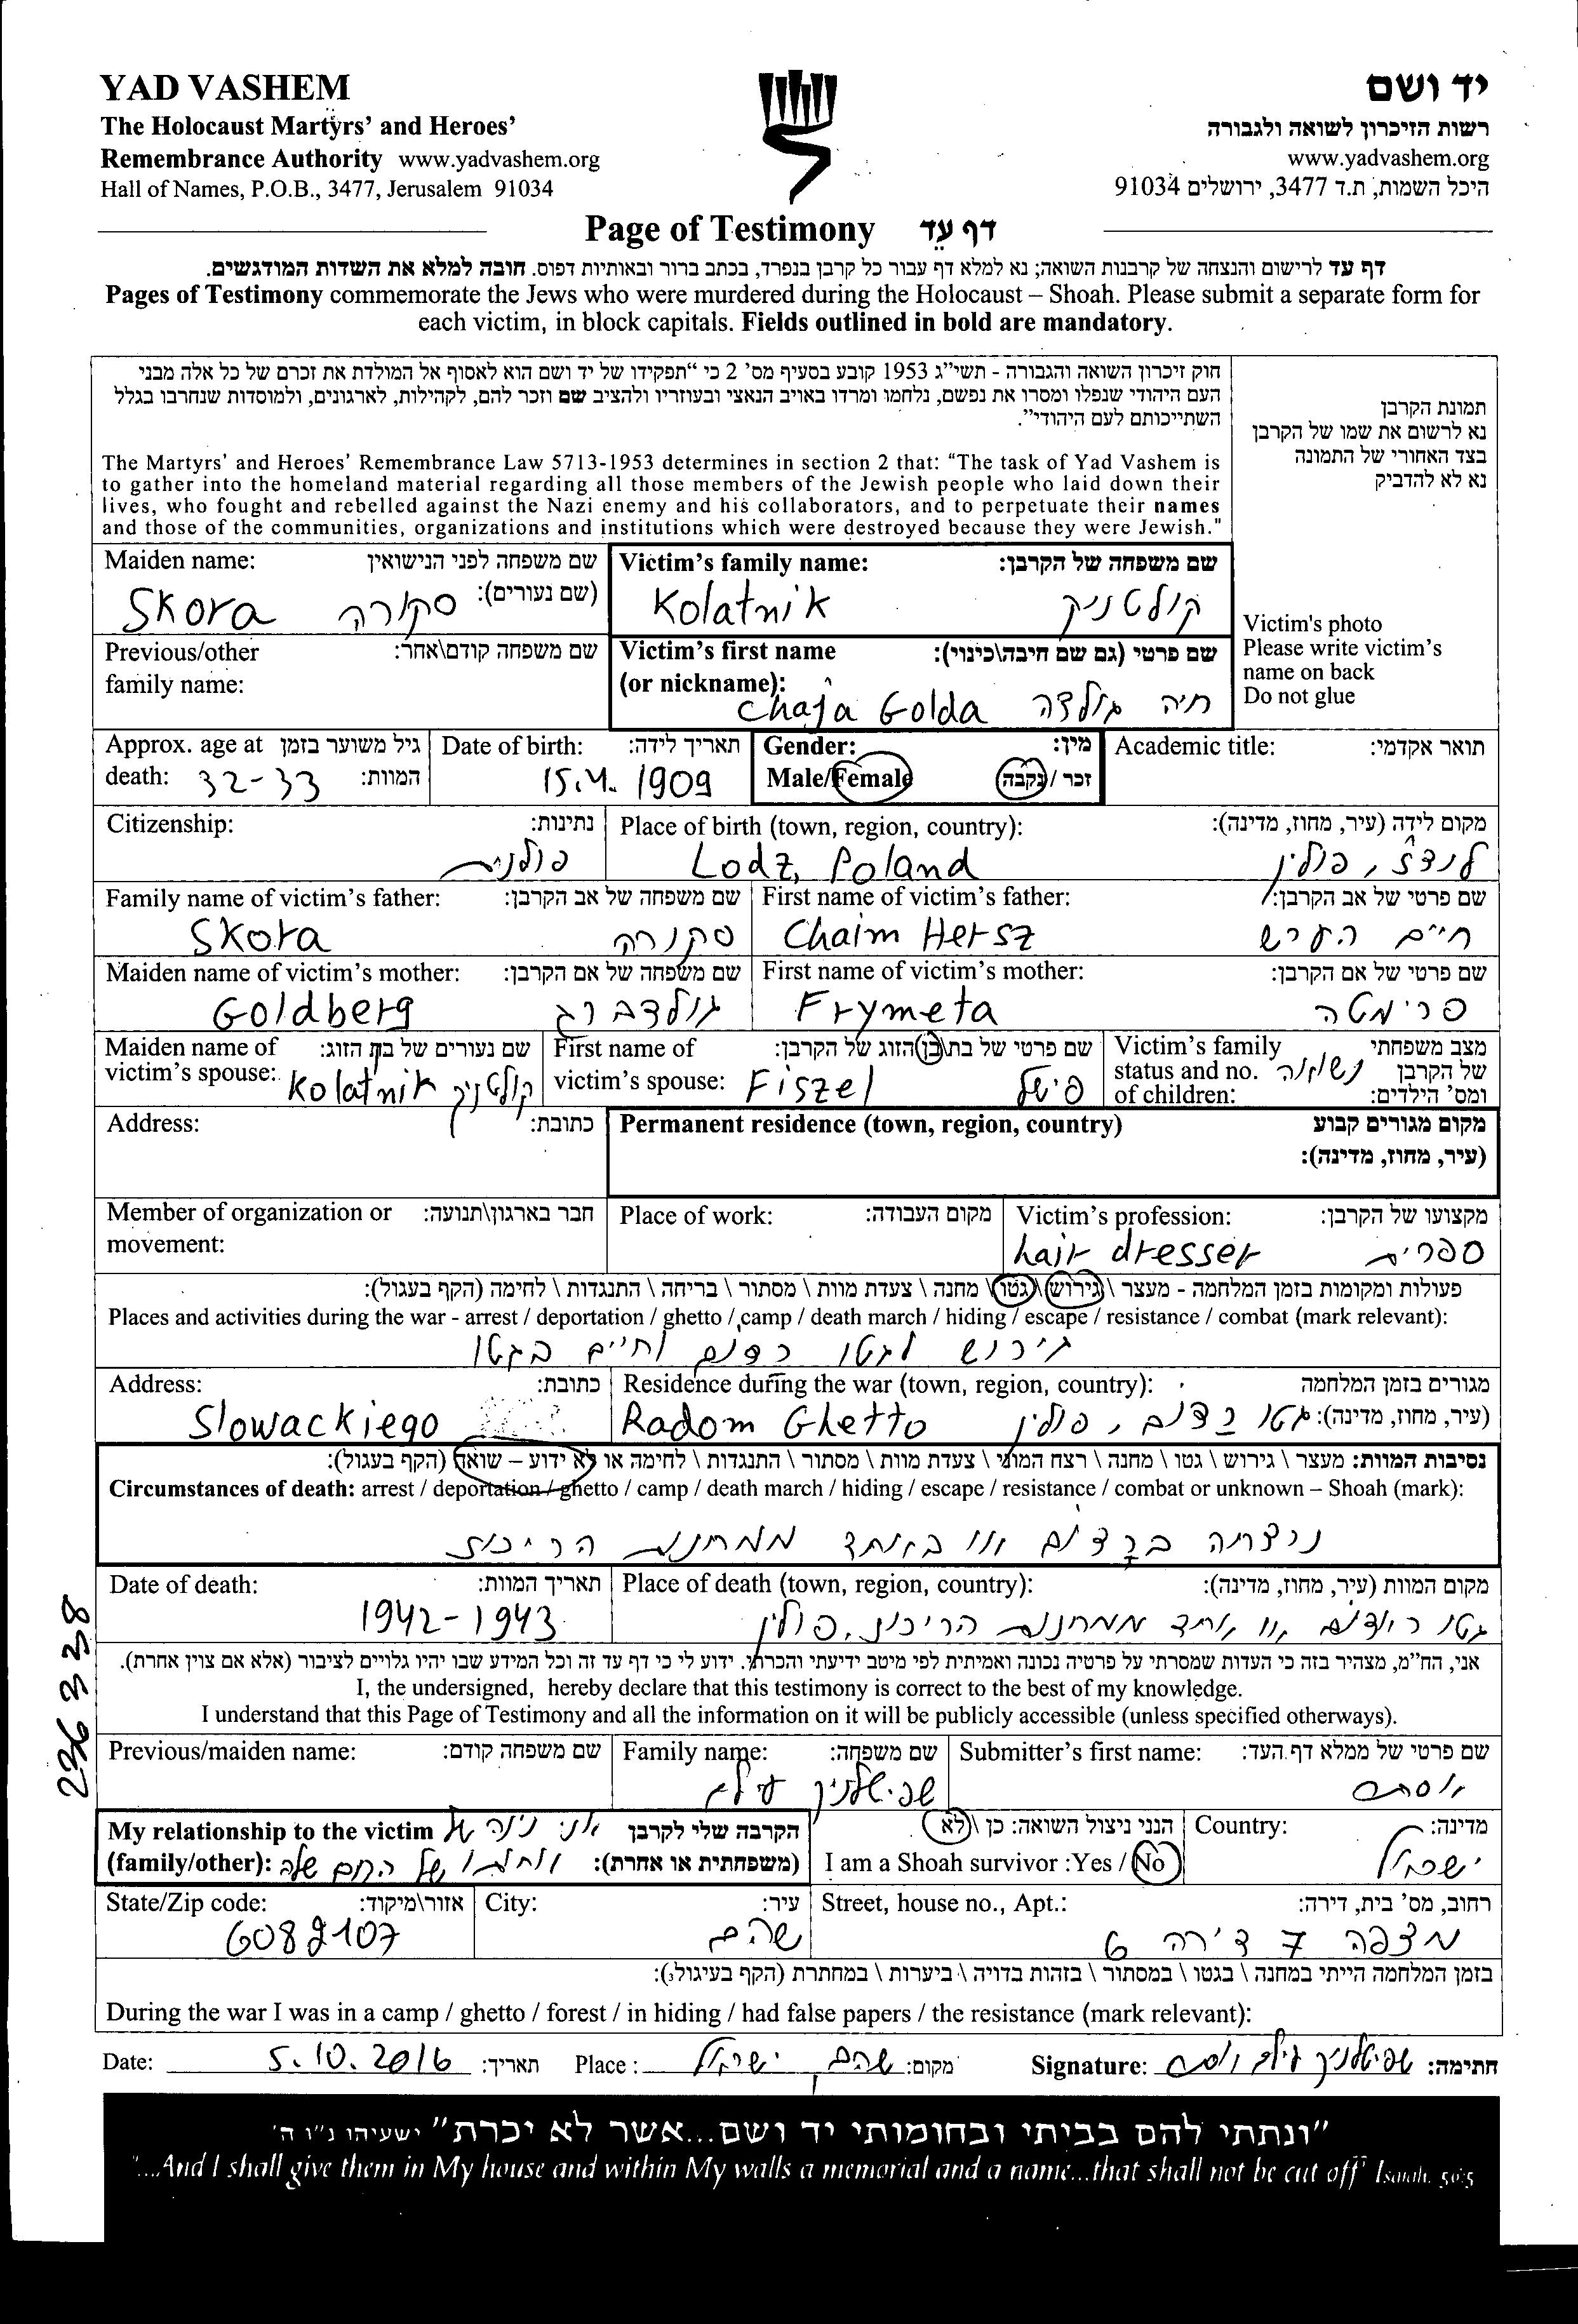 YAD VASHEM
The Holocaust Martyrs' and Heroes'
Remembrance Authority www.yadvashem.org
Hall of Names, P.O.B., 3477, Jerusalem 91034
יד ושם
רשות הזיכרון לשואה ולגבורה
www.yadvashem.org
היכל השמות, ת.ד 3477, ירושלים 91034
Page of Testimony דף עֵד
דף עד לרישום והנצחה של קרבנות השואה; נא למלא דף עבור כל קרבן בנפרד, בכתב ברור ובאותיות דפוס. חובה למלא את השדות המודגשים.
Pages of Testimony commemorate the Jews who were murdered during the Holocaust – Shoah. Please submit a separate form for
each victim, in block capitals. Fields outlined in bold are mandatory.
חוק זיכרון השואה והגבורה - תשי"ג 1953 קובע בסעיף מס' 2 כי "תפקידו של יד ושם הוא לאסוף אל המולדת את זכרם של כל אלה מבני
העם היהודי שנפלו ומסרו את נפשם, נלחמו ומרדו באויב הנאצי ובעוזריו ולהציב שם וזכר להם, לקהילות, לארגונים, ולמוסדות שנחרבו בגלל
השתייכותם לעם היהודי".
The Martyrs' and Heroes' Remembrance Law 5713-1953 determines in section 2 that: "The task of Yad Vashem is
to gather into the homeland material regarding all those members of the Jewish people who laid down their
lives, who fought and rebelled against the Nazi enemy and his collaborators, and to perpetuate their names
and those of the communities, organizations and institutions which were destroyed because they were Jewish."
תמונת הקרבן
נא לרשום את שמו של הקרבן
בצד האחורי של התמונה
נא לא להדביק
Victim's photo
Please write victim's
name on back
Do not glue
Maiden name: שם משפחה לפני הנישואין
(שם נעורים):
Skora סקורה
Victim's family name: שם משפחה של הקרבן:
Kolatnik קולטניק
Previous/other שם משפחה קודם\אחר:
family name:
Victim's first name שם פרטי (גם שם חיבה\כינוי):
(or nickname):
Chaja Golda חיה גולדה
Approx. age at גיל משוער בזמן
death: 32-33 המוות:
Date of birth: תאריך לידה:
15.4. 1909
Gender: מין:
Male/Female זכר / נקבה
Academic title: תואר אקדמי:
Citizenship: נתינות:
פולנית
Place of birth (town, region, country): מקום לידה (עיר, מחוז, מדינה):
Lodz, Poland לודז', פולין
Family name of victim's father: שם משפחה של אב הקרבן:
Skora סקורה
First name of victim's father: שם פרטי של אב הקרבן:
Chaim Hersz חיים הערש
Maiden name of victim's mother: שם משפחה של אם הקרבן:
Goldberg גולדברג
First name of victim's mother: שם פרטי של אם הקרבן:
Frymeta פרימטה
Maiden name of שם נעורים של בת הזוג:
victim's spouse: Kolatnik קולטניק
First name of שם פרטי של בת\בן הזוג של הקרבן:
victim's spouse: Fiszel פישל
Victim's family מצב משפחתי
status and no. נשואה של הקרבן
of children: ומס' הילדים:
Address: כתובת:
Permanent residence (town, region, country) מקום מגורים קבוע
(עיר, מחוז, מדינה):
Member of organization or חבר בארגון\תנועה:
movement:
Place of work: מקום העבודה:
Victim's profession: מקצועו של הקרבן:
hair dresser ספרית
פעולות ומקומות בזמן המלחמה - מעצר \ גירוש \ גטו \ מחנה \ צעדת מוות \ מסתור \ בריחה \ התנגדות \ לחימה (הקף בעגול):
Places and activities during the war - arrest / deportation / ghetto / camp / death march / hiding / escape / resistance / combat (mark relevant):
גירוש לגטו רדום וחיים בגטו
Address: כתובת:
Slowackiego
Residence during the war (town, region, country): מגורים בזמן המלחמה
(עיר, מחוז, מדינה):
Radom Ghetto גטו רדום, פולין
נסיבות המוות: מעצר \ גירוש \ גטו \ מחנה \ רצח המוני \ צעדת מוות \ מסתור \ התנגדות \ לחימה או לא ידוע – שואה (הקף בעגול):
Circumstances of death: arrest / deportation / ghetto / camp / death march / hiding / escape / resistance / combat or unknown – Shoah (mark):
נרצחה ברדום או באחד ממחנות הריכוז
Date of death: תאריך המוות:
1942-1943
Place of death (town, region, country): מקום המוות (עיר, מחוז, מדינה):
גטו רדום או אחד ממחנות הריכוז, פולין
אני, הח"מ, מצהיר בזה כי העדות שמסרתי על פרטיה נכונה ואמיתית לפי מיטב ידיעתי והכרתי. ידוע לי כי דף עד זה וכל המידע שבו יהיו גלויים לציבור (אלא אם צוין אחרת).
I, the undersigned, hereby declare that this testimony is correct to the best of my knowledge.
I understand that this Page of Testimony and all the information on it will be publicly accessible (unless specified otherways).
Previous/maiden name: שם משפחה קודם:
Family name: שם משפחה:
שפיטלניק גילת
Submitter's first name: שם פרטי של ממלא דף העד:
אסתר
My relationship to the victim הקרבה שלי לקרבן
(family/other): (משפחתית או אחרת):
אני נינה של
של האם שלה
הנני ניצול השואה: כן \ לא
I am a Shoah survivor :Yes / No
Country: מדינה:
ישראל
State/Zip code: אזור\מיקוד:
6089107
City: עיר:
שהם
Street, house no., Apt.: רחוב, מס' בית, דירה:
מצפה 7 דירה 6
בזמן המלחמה הייתי במחנה \ בגטו \ במסתור \ בזהות בדויה \ ביערות \ במחתרת (הקף בעיגול):
During the war I was in a camp / ghetto / forest / in hiding / had false papers / the resistance (mark relevant):
Date: 5.10.2016 תאריך: Place : שהם ישראל מקום: Signature: חתימה:
296338
"ונתתי להם בביתי ובחומותי יד ושם...אשר לא יכרת" ישעיהו נ"ו ה'
"...And I shall give them in My house and within My walls a memorial and a name...that shall not be cut off" Isaiah. 56:5